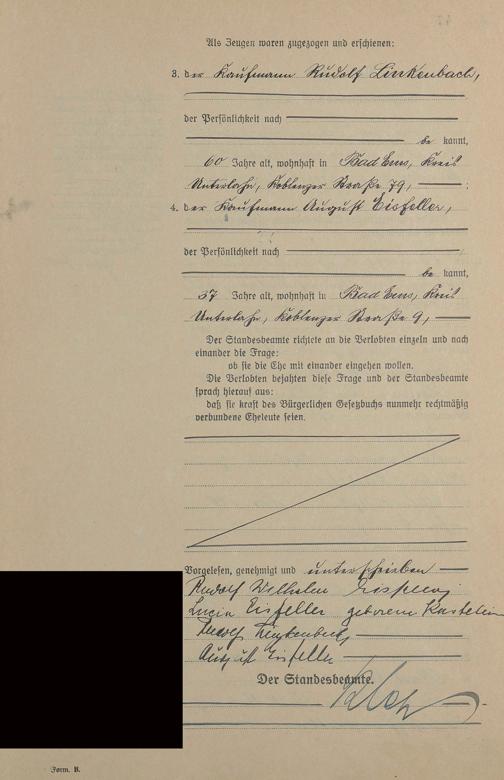 Als Zeugen waren zugezogen und erschienen:
3. der Kaufmann Rudolf Linkenbach,
der Persönlichkeit nach
be kannt,
60 Jahre alt, wohnhaft in Bad Ems, Kreis
Unterlahn, Koblenzer Straße 79,
4. der Kaufmann August Eisfeller,
der Persönlichkeit nach
be kannt,
37 Jahre alt, wohnhaft in Bad Ems, Kreis
Unterlahn, Koblenzer Straße 9,
Der Standesbeamte richtete an die Verlobten einzeln und nach
einander die Frage:
ob sie die Ehe mit einander eingehen wollen.
Die Verlobten bejahten diese Frage und der Standesbeamte
sprach hierauf aus:
daß sie kraft des Bürgerlichen Gesetzbuchs nunmehr rechtmäßig
verbundene Eheleute seien.
Vorgelesen, genehmigt und unterschrieben
Rudolf Wilhelm
Lucia Eisfeller geborene
Rudolf Linkenbach
August Eisfeller
Der Standesbeamte.
Form. B.